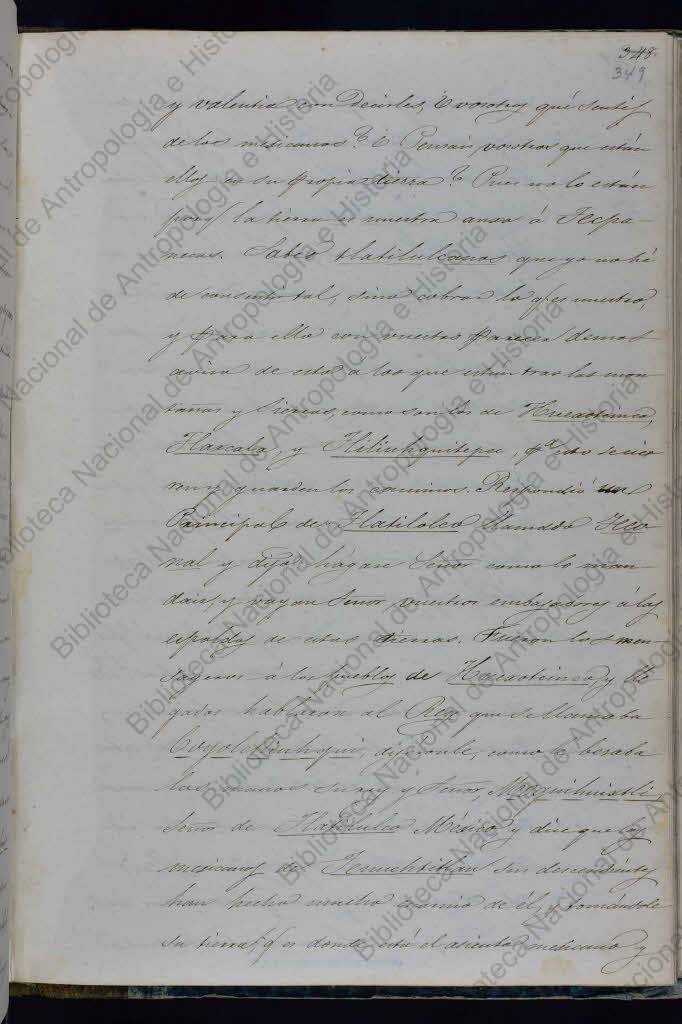 348.
349
y valentia con decirles, ¿vosotros qué sentis
de los mexicanos? ¿Pensais, vosotros que están
ellos en su propia tierra? Pues no lo están
porq̃ la tierra es nuestra ansa á Tecpa-
necas. Sabed tlatilulcanos que yo no hé
de consentir tal, sino cobrar lo q̃ es nuestro,
y para ello con vuestro parecer demos
aviso de esto a los que están tras las mon-
tañas y sierras, como son los de Huexotcinco,
Tlaxcala, y Tliliuhquitepec, pᵃ esto se
y guarden los caminos. Respondió un
Principal de Tlatilolco llamado Teco-
nal y dijo: hágase Señor como lo man-
dais, y vayan Señor vuestros embajadores á las
espaldas de estas tierras. Fueron los men-
sageros á los pueblos de Huexotcinco, y lle-
gados hablaron al Rey que se llamaba
dijéronle, como le besaba
las manos su rey y Señor,
Señor de Tlatilulco México y dice que los
mexicanos de Tenuchtitlan sus descendientes
han hecho mucho escarnio de él, y tomándole
su tierra q̃ es donde está el asiento mexicano y
Biblioteca Nacional de Antropología e Historia